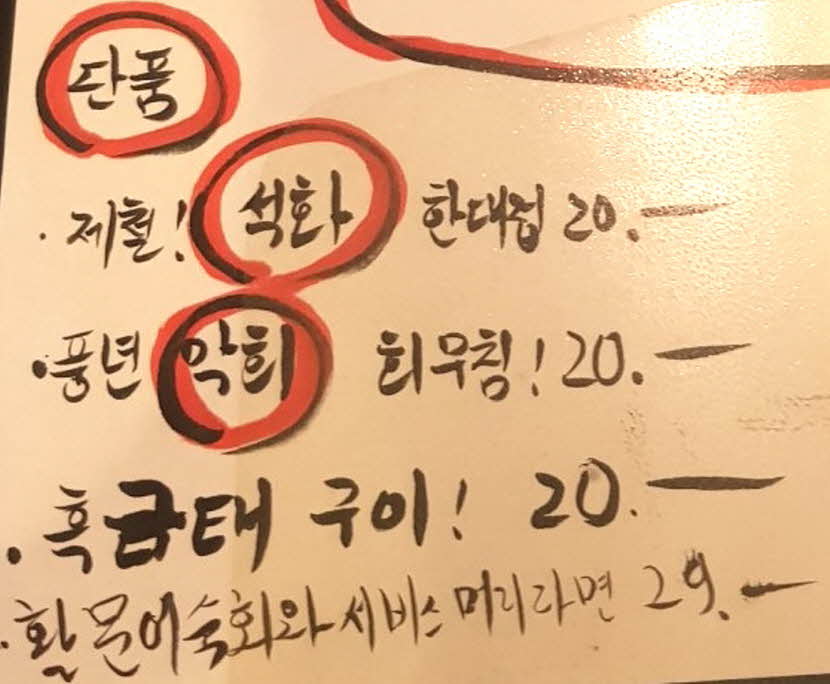 단품
· 제철! 석화 한대접 20.—
· 풍년 악희 회무침! 20.—
· 흑금태 구이! 20.—
· 활문어숙회와 서비스 머리라면 29.—